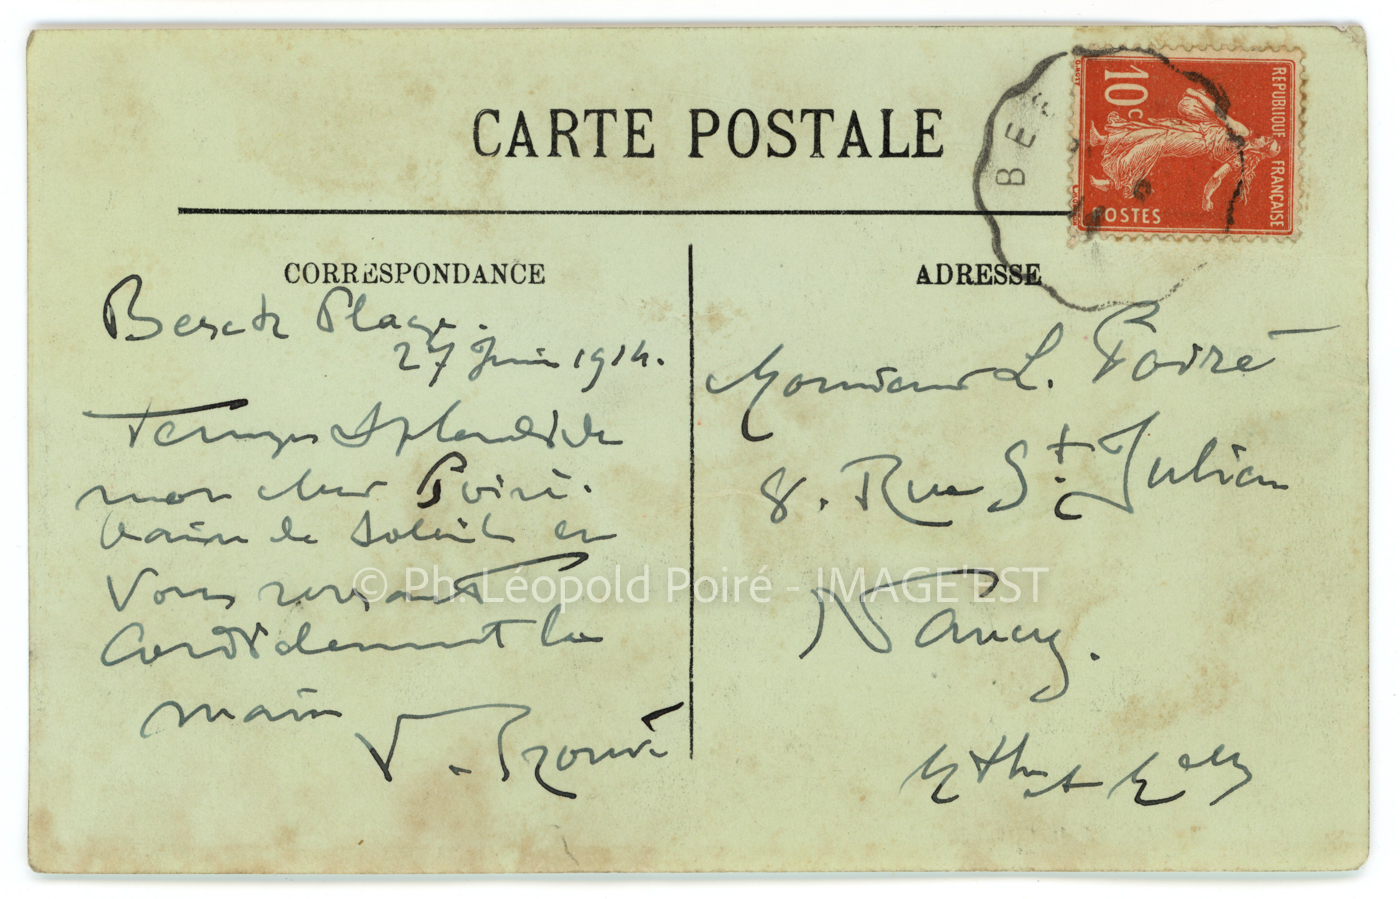 CARTE POSTALE
REPUBLIQUE FRANÇAISE
10c
POSTES
BE
CORRESPONDANCE
Plage.
27 Juin 1914.
Temps splendide
mon cher Poiré.
bains de soleil en
vous serrant
cordialement la
main
V. Prouvé
ADRESSE
Monsieur L. Poiré
8. Rue St. Julien
Nancy.
Mthe et Mlle
© Ph. Léopold Poiré - IMAGE'EST